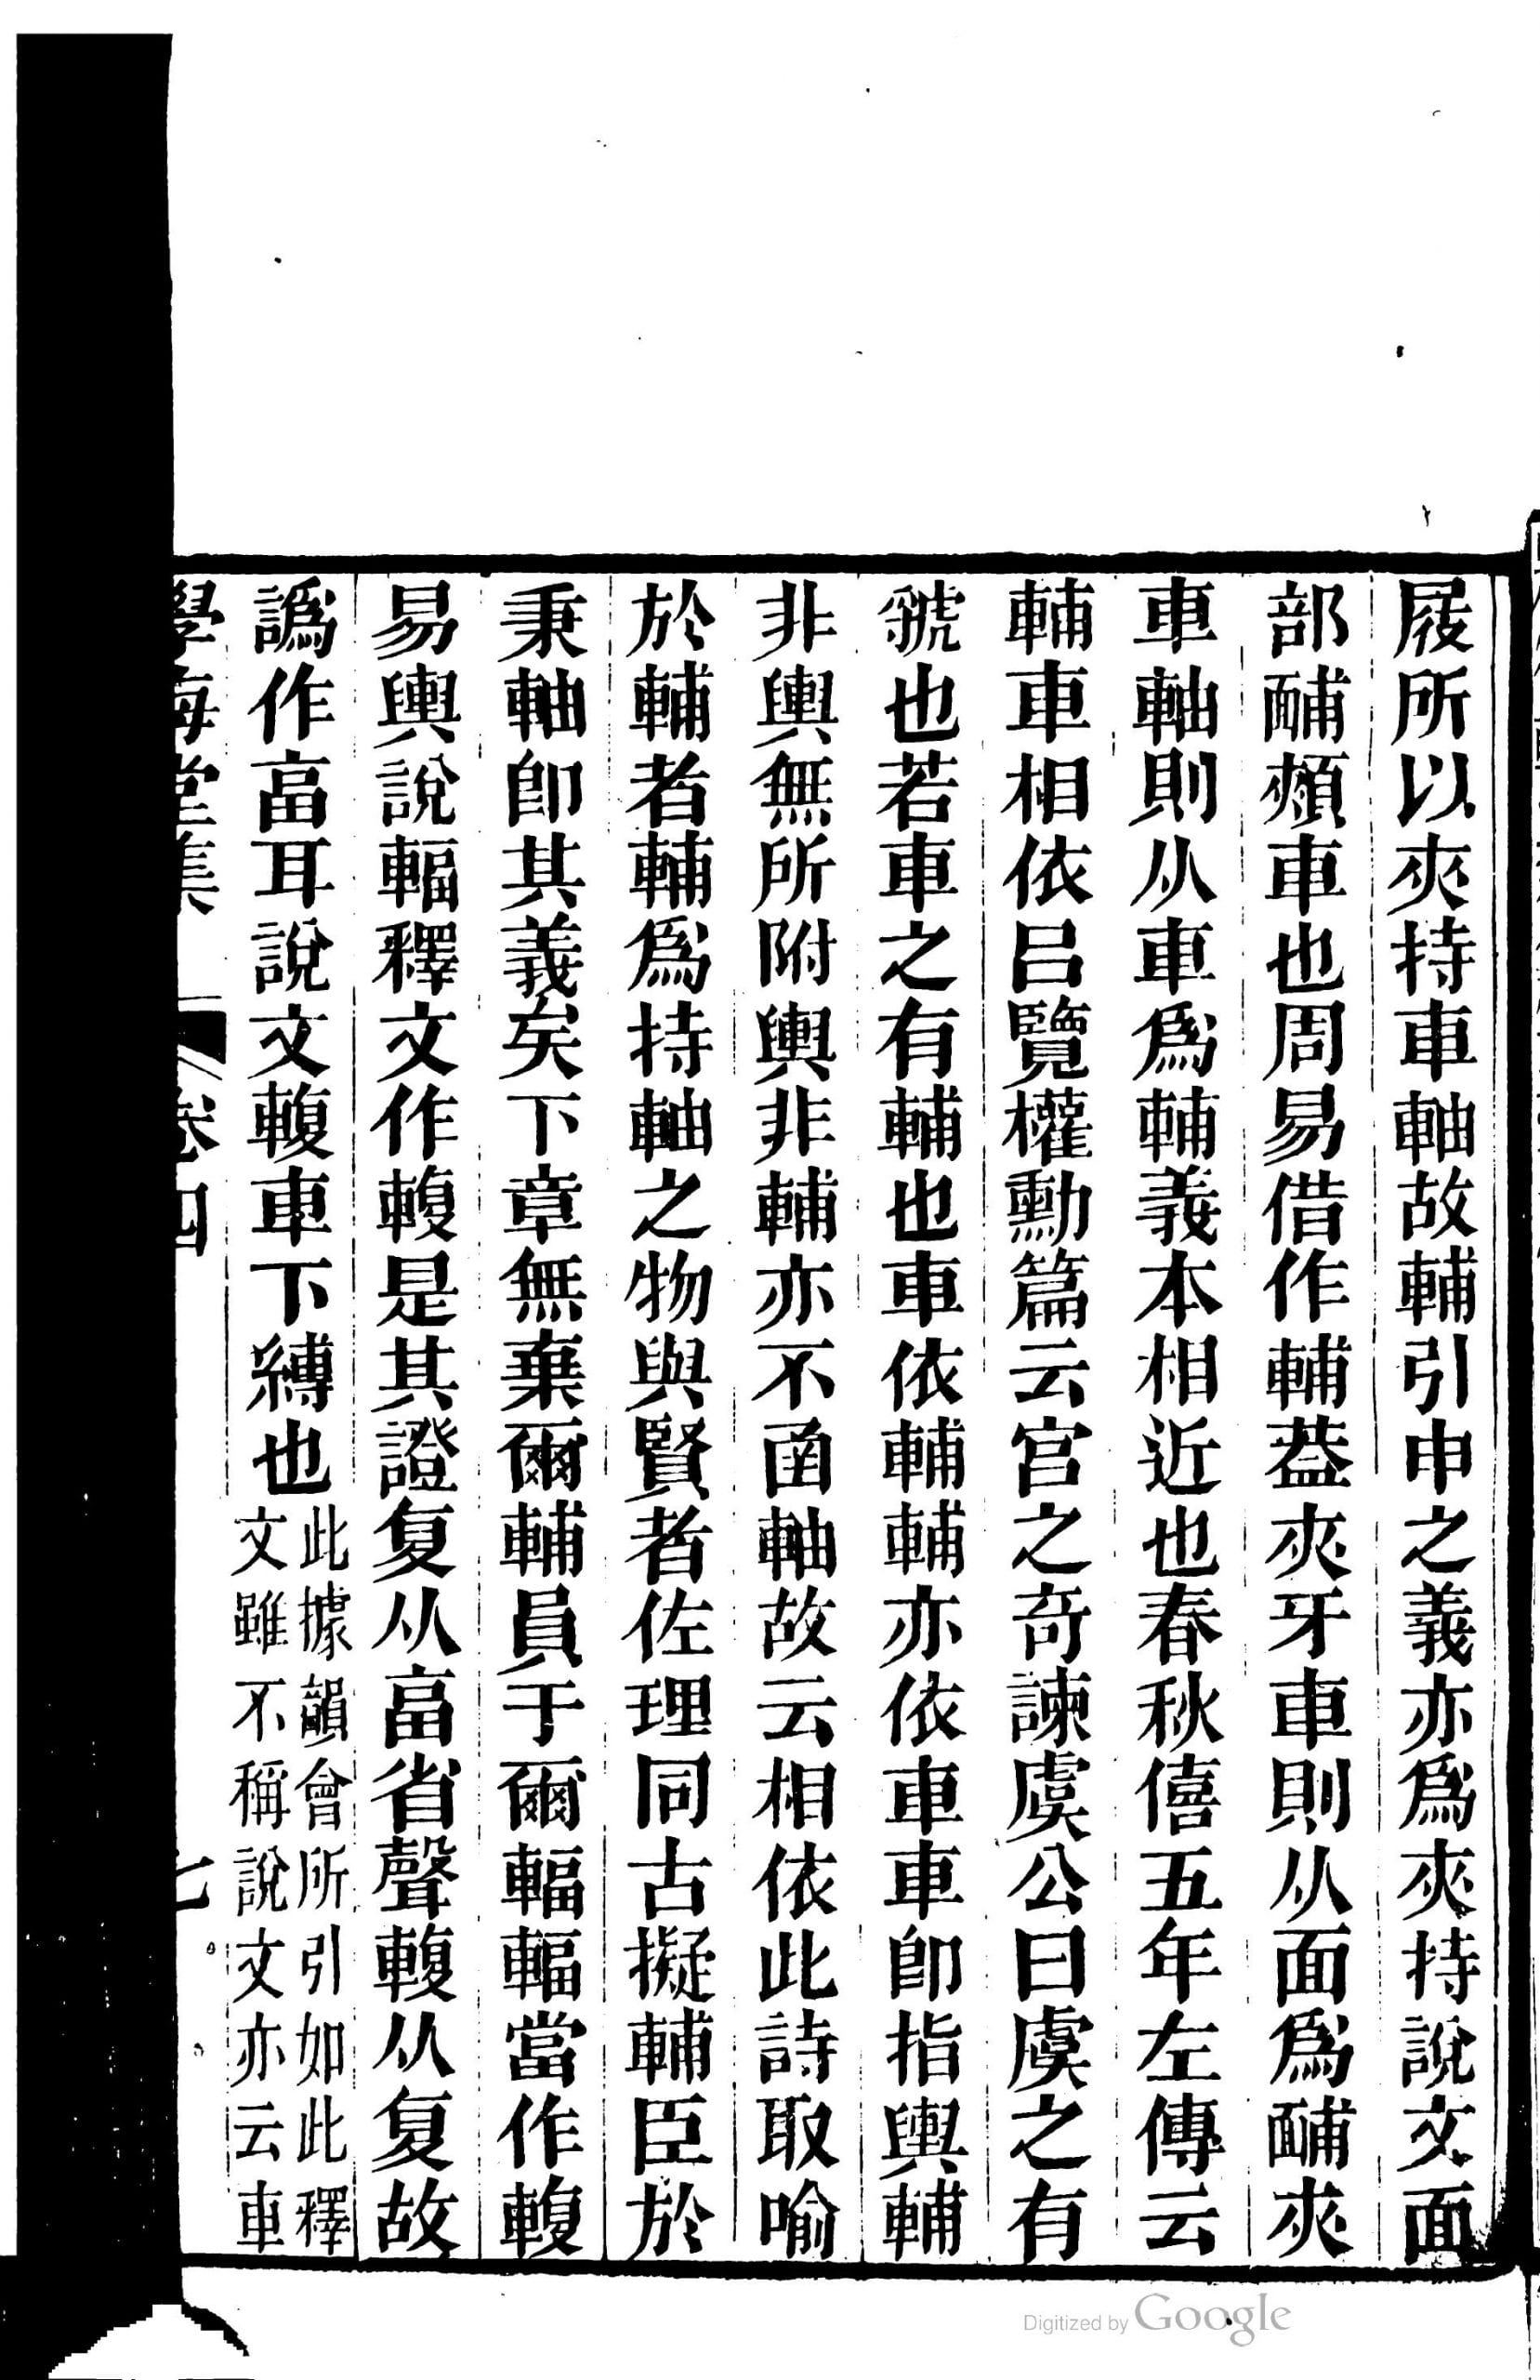 屐所以夾持車軸故輔引申之義亦爲夾持說文面
部䩉頰車也周易借作輔葢夾牙車則从面爲䩉夾
車軸則从車爲輔義本相近也春秋僖五年左傳云
輔車相依呂覽權勳篇云宮之奇諫虞公曰虞之有
虢也若車之有輔也車依輔輔亦依車車卽指輿輔
非輿無所附輿非輔亦不函軸故云相依此詩取喻
於輔者輔爲持軸之物與賢者佐理同古擬輔臣於
秉軸卽其義矣下章無棄爾輔員于爾輻輻當作輹
易輿說輻釋文作輹是其證复从畐省聲輹从复故
譌作畐耳說文輹車下縛也此據韻會所引如此釋
文雖不稱說文亦云車
學海堂集 卷四 七
Digitized by Google